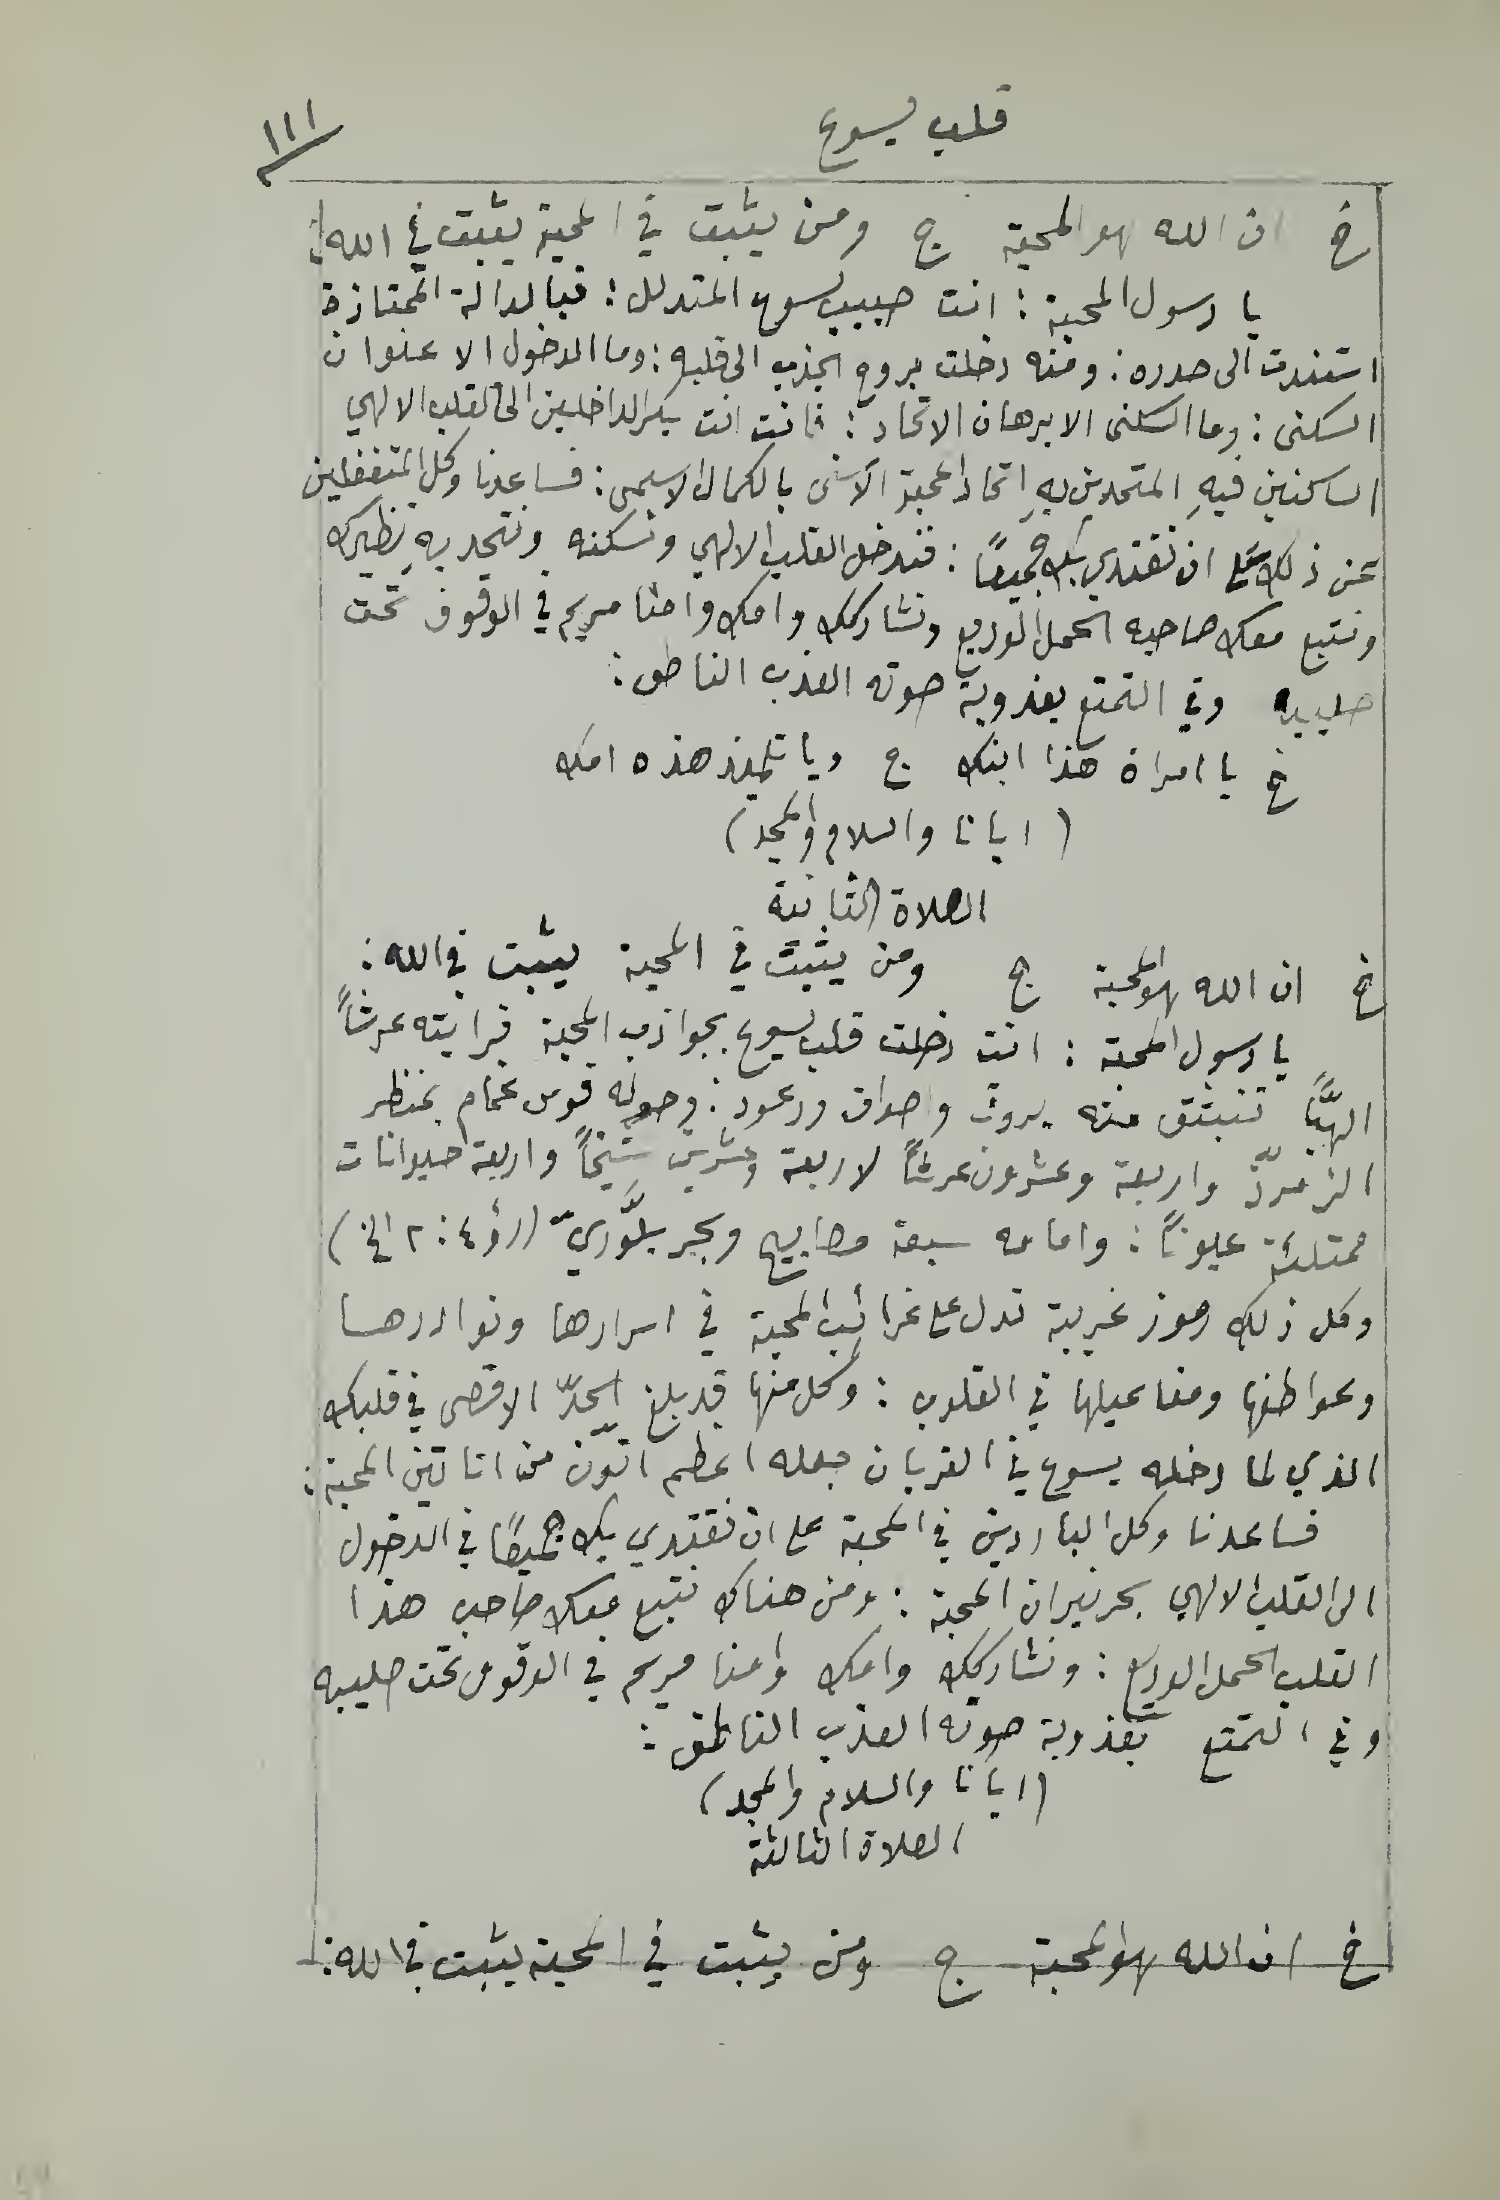 قلب يسوع
١١١
خ ان الله هو المحبة ج ومن يثبت في المحبة يثبت في الله :
يا رسول المحبة : انت حبيب يسوع المتدلل : فبالدالة الممتازة
استندت الى صدره : ومنه دخلت بروح الجذب الى قلبه : وما الدخول الا عنوان
السكنى : وما السكنى الا برهان الاتحاد : فانت انت بكر الداخلين الى القلب الالهي
الساكنين فيهِ المتحدين بهِ اتحاد المحبة الأسنى بالكمال الاسمى : فساعدنا وكل المتغفلين
عن ذلك على ان نقتدي بك جميعًا : فندخل القلب الالهي ونسكنه ونتحد بهِ نظيرك
ونتبع معك صاحبه الحمل الوديع ونشاركك وامك وامنا مريم في الوقوف تحت
صليبه وفي التمتع بعذوبة صوته العذب الناطق :
خ يا امراة هذا ابنك ج ويا تلميذ هذه امك
( ابانا والسلام والمجد )
الصلاة الثانية
خ ان الله هو المحبة ج ومن يثبت في المحبة يثبت في الله :
يا رسول المحبة : انت دخلت قلب يسوع بجواذب المحبة فرايته عرشاً
الهيًّا تنبثق منه بروق واصوات ورعود : وحوله قوس غمام بمنظر
الزمرّذ واربعة وعشرون عرشاً لاربعة وعشرين شيخاً واربعة حيوانات
ممتلئة عيوناً : وامامه سبعة مصابيح وبحر بلَّوريّ (رؤ ٤ : ٢ الخ )
وكل ذلك رموز غريبة تدل على غرائب المحبة في اسرارها ونوادرها
وعواطفها ومفاعيلها في القلوب : وكل منها قد بلغ الحدّ الاقصى في قلبك
الذي لما دخله يسوع في القربان جعله اعظم اتّون من اتاتين المحبة :
فساعدنا وكل الباردين في المحبة على ان نقتدي بك جميعًا في الدخول
الى القلب الالهي بحر نيران المحبة : ومن هناك نتبع معك صاحب هذا
القلب الحمل الوديع : ونشاركك وامك وامنا مريم في الوقوف تحت صليبه
وفي التمتع بعذوبة صوته العذب الناطق :
(ابانا والسلام والمجد )
الصلاة الثالثة
خ ان الله هو المحبة ج ومن يثبت في المحبة يثبت في الله :